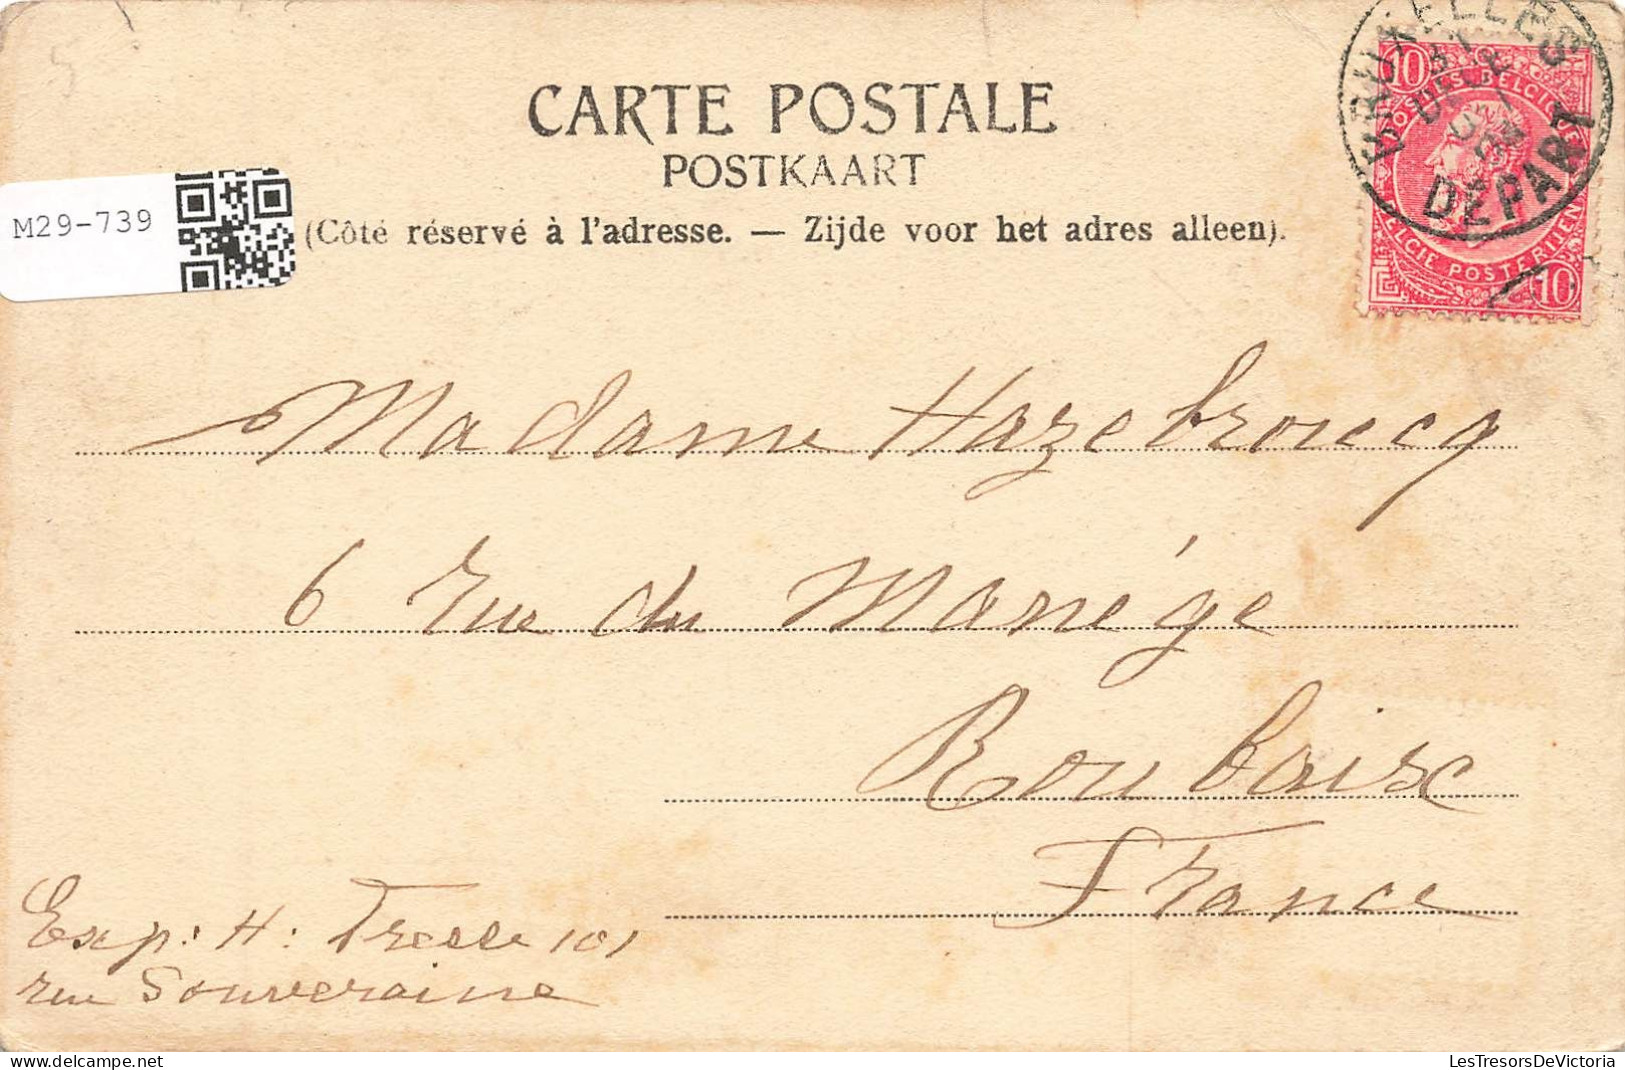 CARTE POSTALE
POSTKAART
(Côté réservé à l'adresse. — Zijde voor het adres alleen).
M29-739
BRUXELLES
DEPART
10 10
POSTES BELGIQUE
BELGIE POSTERIJEN
10
Madame Hazebroucq
6 rue du Manége
Roubaix
France
Exp: H: Tresse 101
rue Souveraine
LesTresorsDeVictoria